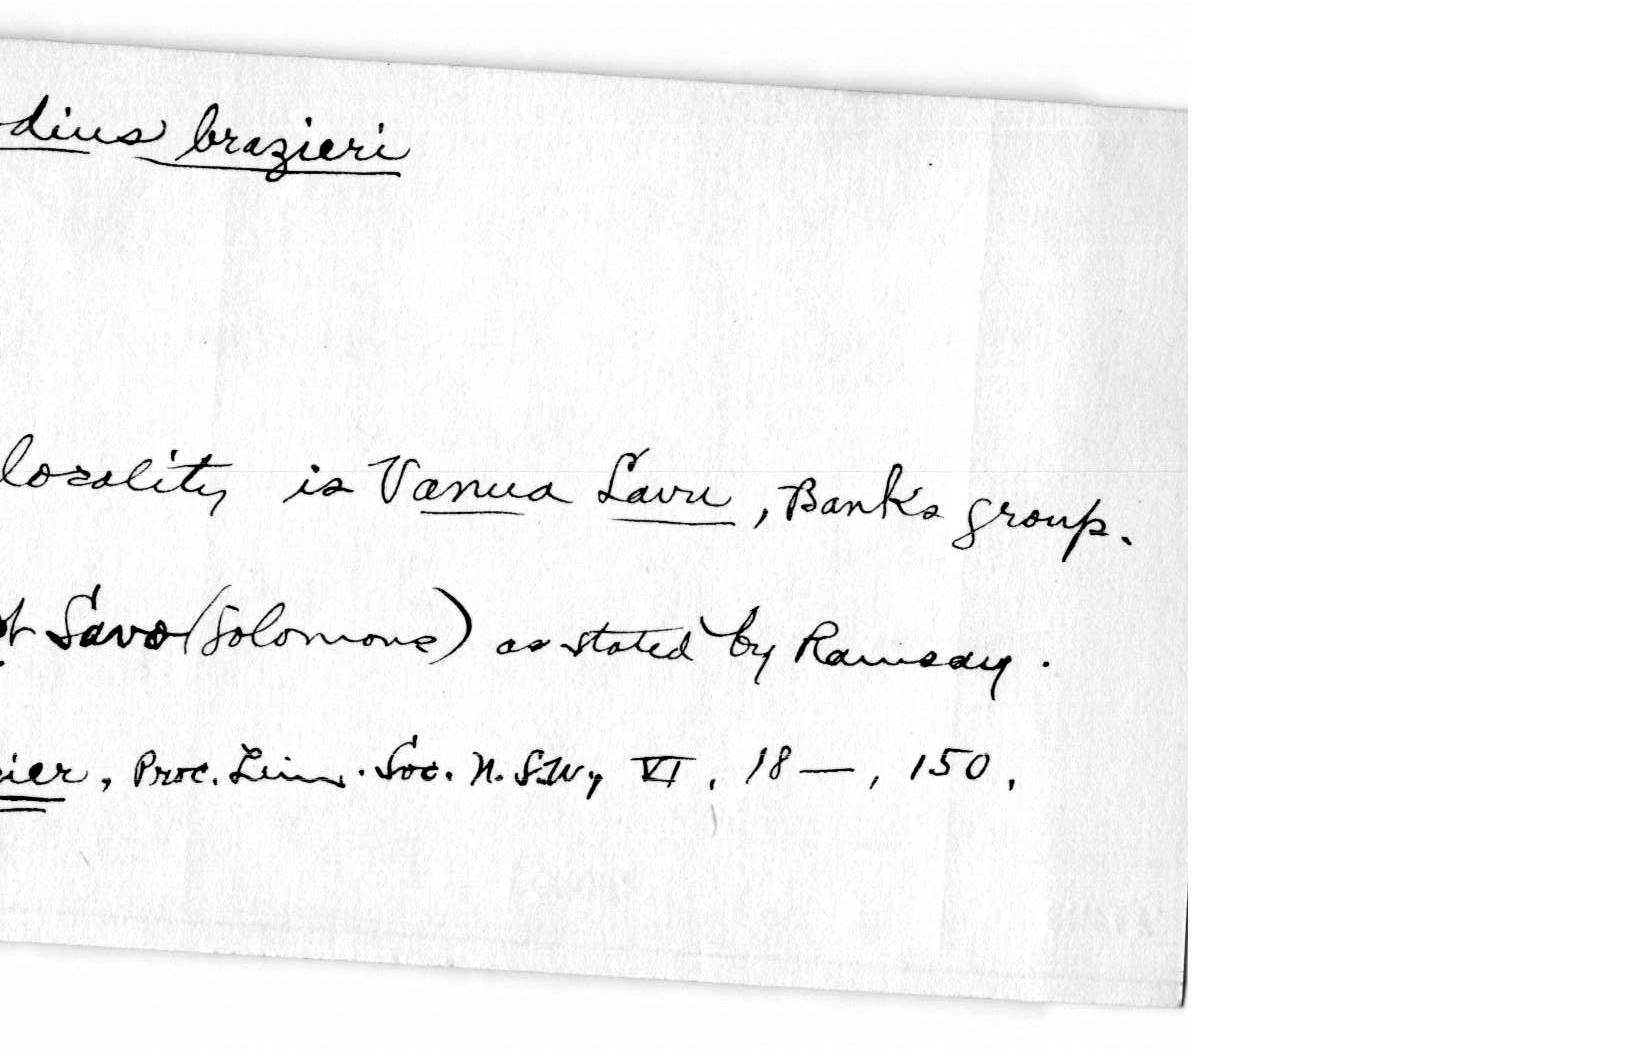 dius brazieri
locality is Vanua Lavu, Banks group.
Savo (Solomons) as stated by Ramsay.
ier, Proc. Linn. Soc. N.S.W., VI, 18—, 150.